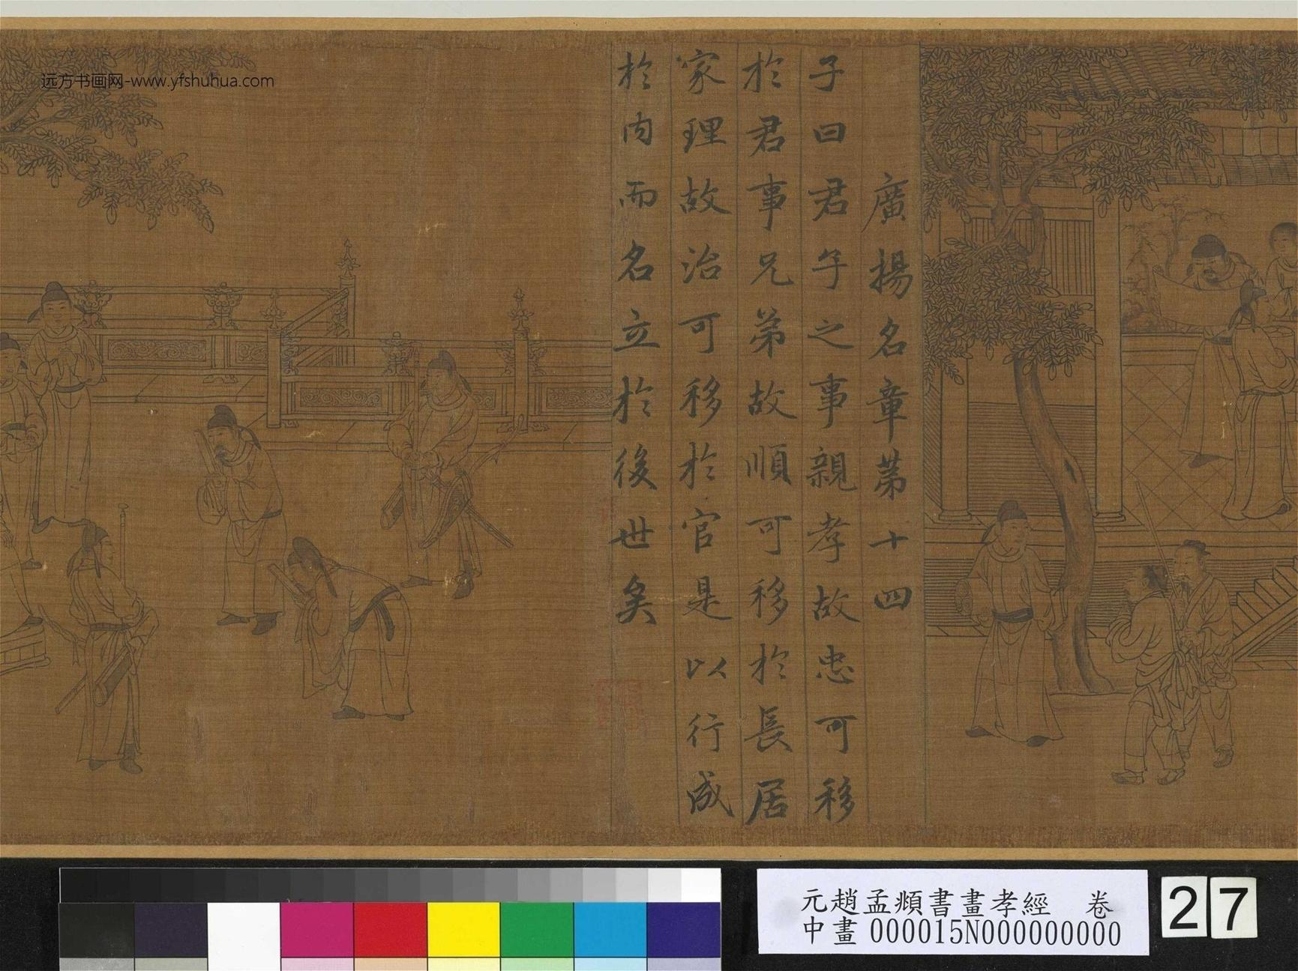 廣揚名章第十四
子曰君子之事親孝故忠可移
於君事兄弟故順可移於長居
家理故治可移於官是以行成
於內而名立於後世矣
远方书画网-www.yfshuhua.com
元趙孟頫書畫孝經 卷
中畫 000015N000000000
27